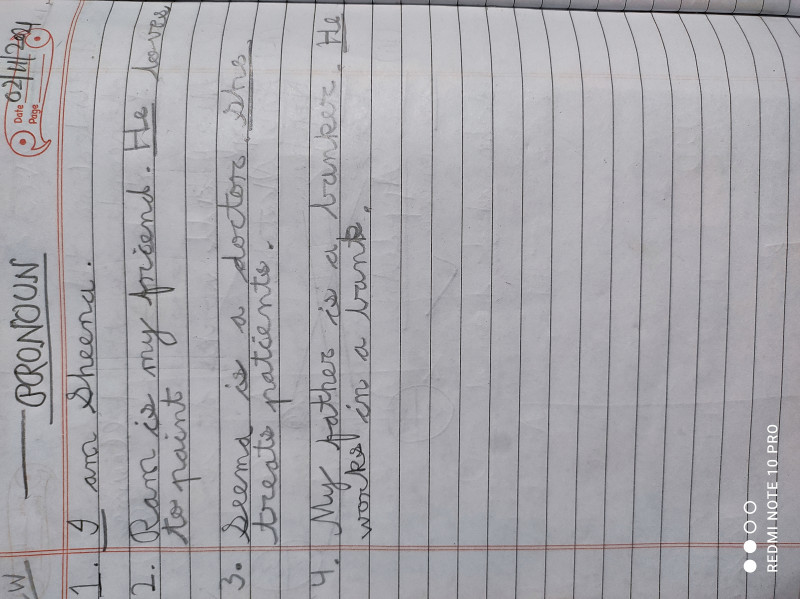 Date 02/11/2021
Page
W
PRONOUN
1. I am Sheena.
2. Ram is my friend. He loves
to paint
3. Seema is a doctor. She
treats patients.
4. My father is a banker. He
works in a bank.
REDMI NOTE 10 PRO